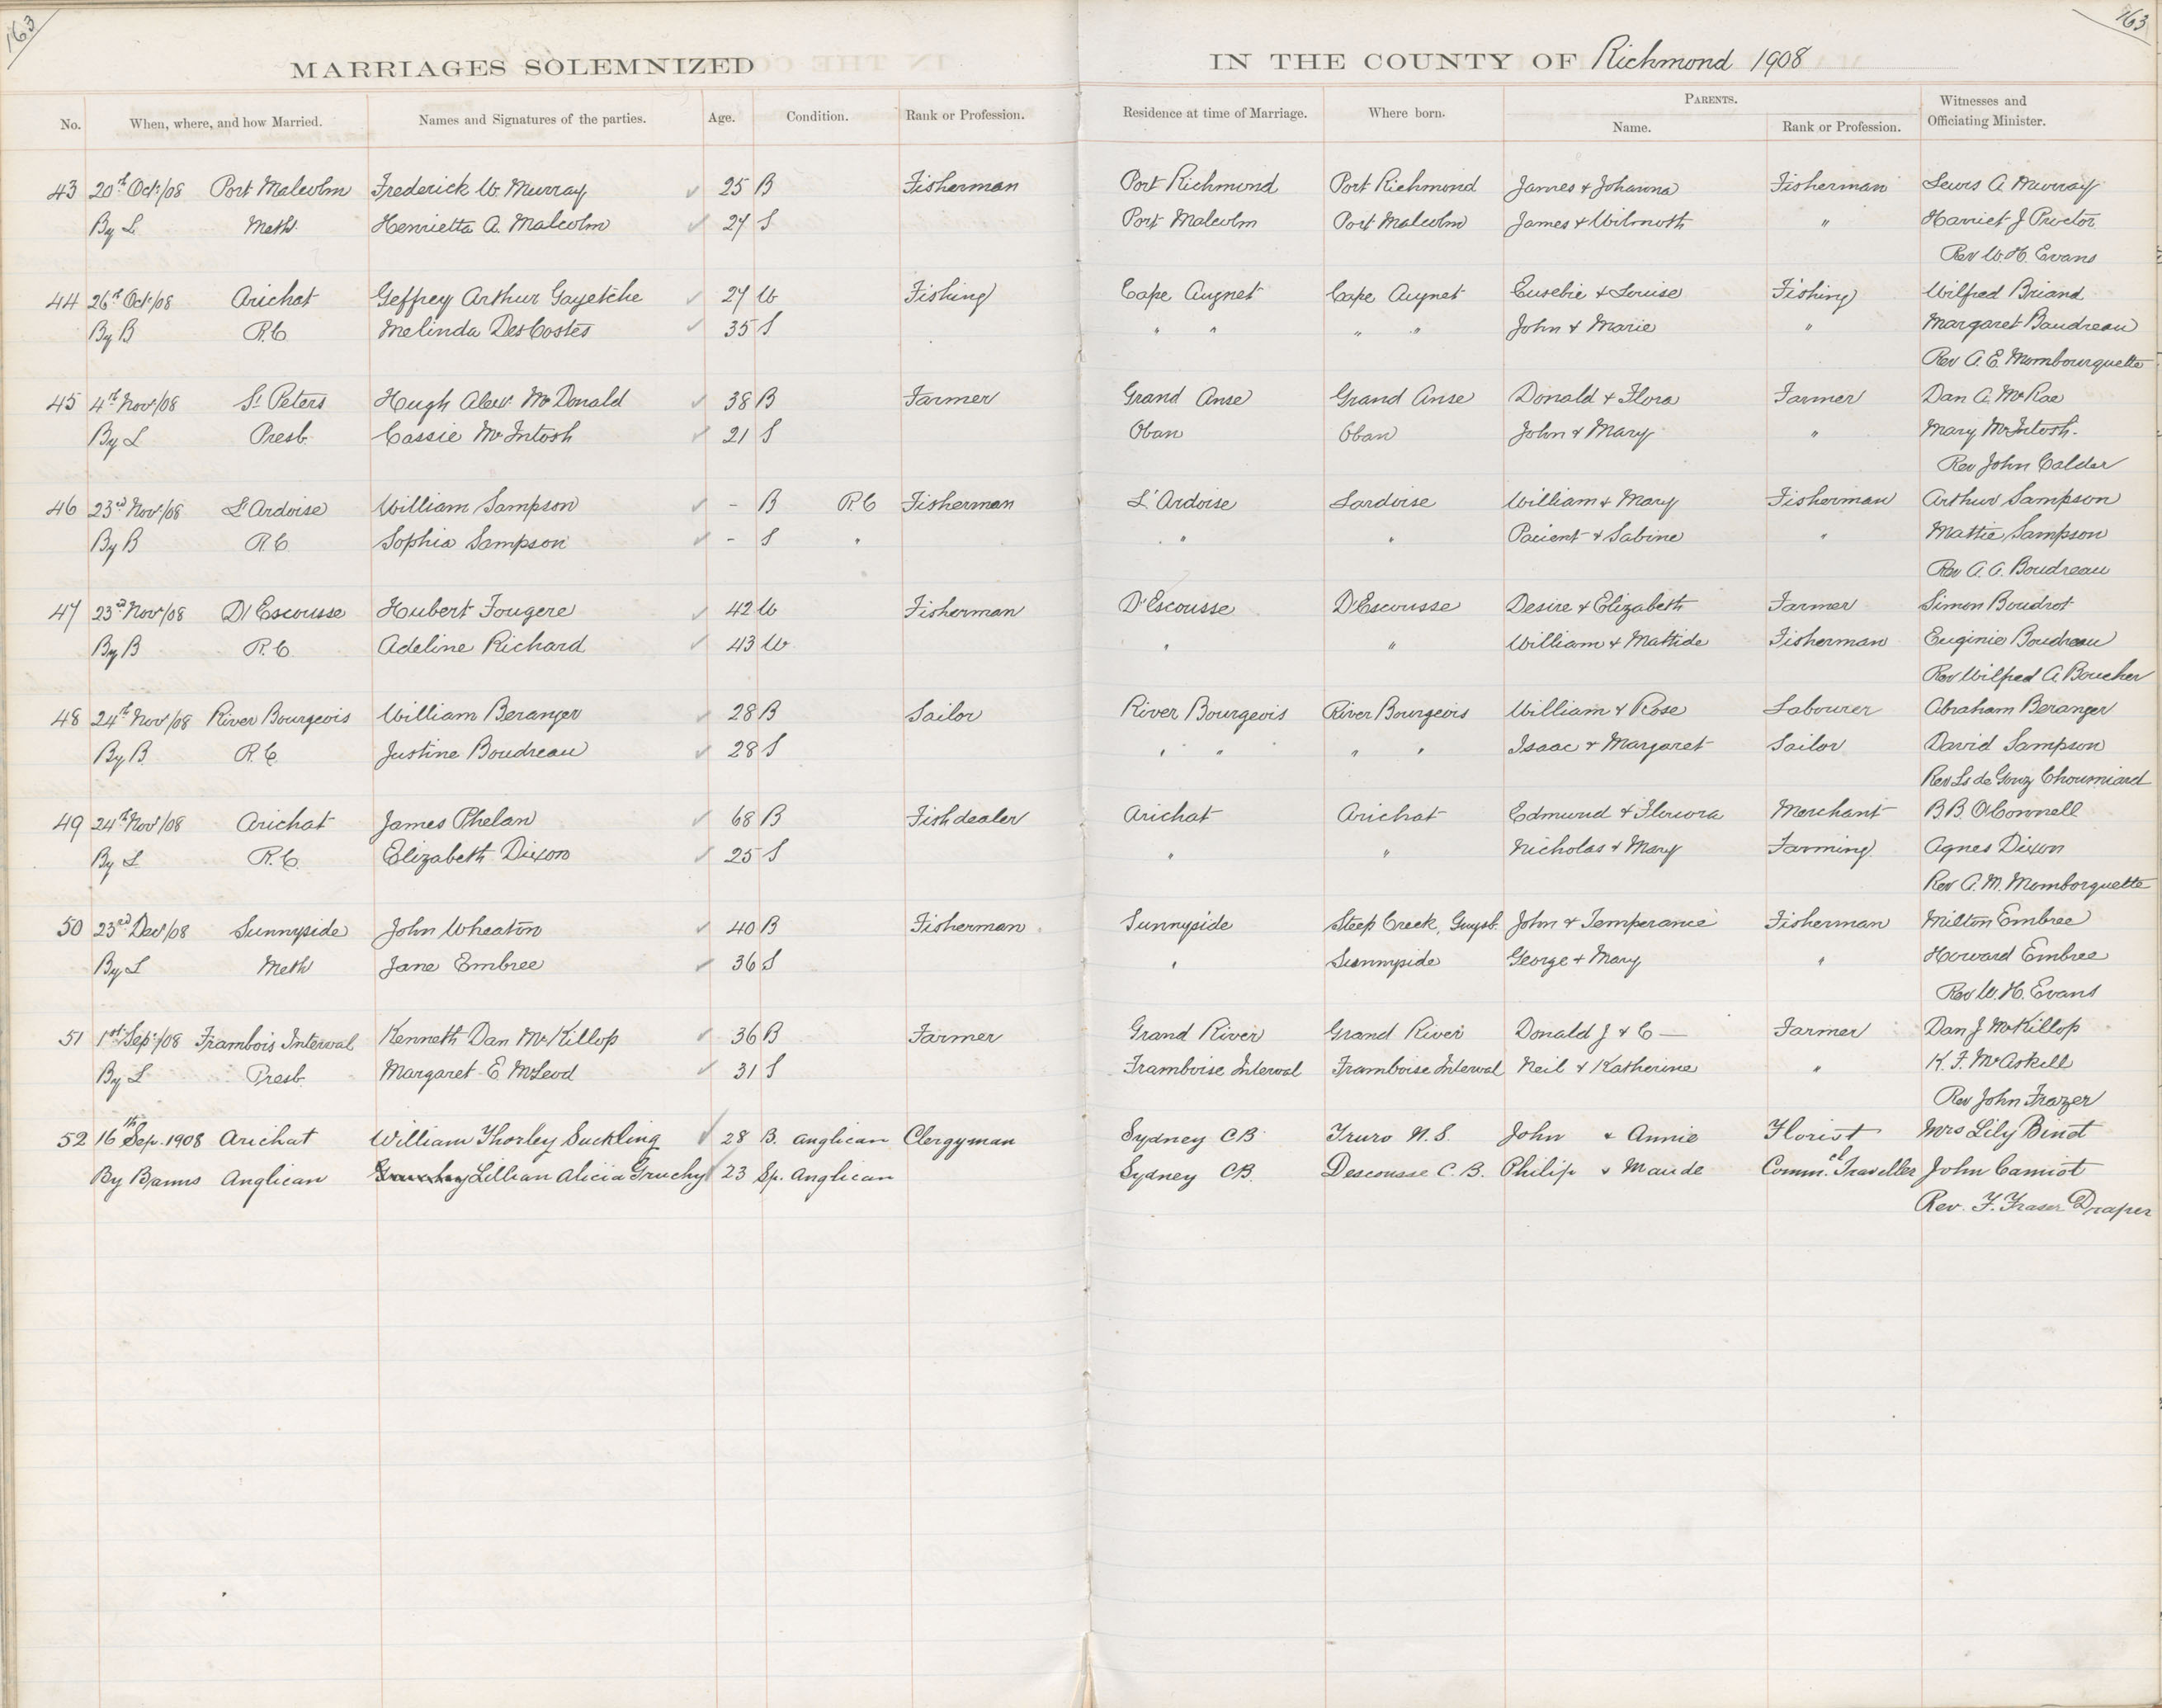 163
163
MARRIAGES SOLEMNIZED IN THE COUNTY OF Richmond 1908
No. When, where, and how Married. Names and Signatures of the parties. Age. Condition. Rank or Profession. Residence at time of Marriage. Where born. PARENTS. Witnesses and
Name. Rank or Profession. Officiating Minister.
43 20th Oct/08 Port Malcolm Frederick W. Murray 25 B Fisherman Port Richmond Port Richmond James & Johanna Fisherman Lewis A Murray
By L Meth. Henrietta A. Malcolm 27 S Port Malcolm Port Malcolm James & Wilmoth " Harriet J Proctor
Rev W. H. Evans
44 26th Oct/08 Arichat Geffrey Arthur Gayetche 27 W Fishing Cape Augnet Cape Augnet Eusebie & Louise Fishing Wilfred Briand
By B R.C Melinda DesCostes 35 S " " " " John & Marie " Margaret Baudreau
Rev A. E. Mombourquette
45 4th Nov/08 St Peters Hugh Alexr McDonald 38 B Farmer Grand Anse Grand Anse Donald & Flora Farmer Dan A. McRae
By L Presb. Cassie McIntosh 21 S Oban Oban John & Mary " Mary McIntosh.
Rev John Calder
46 23rd Nov/08 L'Ardoise William Sampson - B R.C Fisherman L'Ardoise Lardoise William & Mary Fisherman Arthur Sampson
By B R.C Sophia Sampson - S " " " Pacient & Sabine " Mattie Sampson
Rev A. A. Boudreau
47 23rd Nov/08 D'Escousse Hubert Fougere 42 W Fisherman D'Escousse D'Escousse Desire & Elizabeth Farmer Simon Boudrot
By B R.C. Adeline Richard 43 W " " William & Matide Fisherman Euginie Boudreau
Rev Wilfred A Boucher
48 24th Nov/08 River Bourgeois William Beranger 28 B Sailor River Bourgeois River Bourgeois William & Rose Labourer Abraham Beranger
By B. R.C. Justine Boudreau 28 S " " " " Isaac & Margaret Sailor David Sampson
Rev Ls de Gouz Choumiard
49 24th Nov/08 Arichat James Phelan 68 B Fishdealer Arichat Arichat Edmund & Flouora Merchant B. B. O'Connell
By L R.C. Elizabeth Dixon 25 S " " Nicholas & Mary Farming Agnes Dixon
Rev A. M. Momborquette
50 23rd Dec/08 Sunnyside John Wheaton 40 B Fisherman Sunnyside Steep Creek, Guysb. John & Temperance Fisherman Milton Embree
By L Meth Jane Embree 36 S " Sunnyside George + Mary " Howard Embree
Rev W. H. Evans
51 1st Sep/08 Frambois Interval Kenneth Dan McKillop 36 B Farmer Grand River Grand River Donald J & C — Farmer Dan J McKillop
By L Presb. Margaret E McLeod 31 S Framboise Interval Framboise Interval Neil & Katherine " K. F. McAskill
Rev John Frazer
52 16th Sep. 1908 Arichat William Thorley Suckling 28 B. Anglican Clergyman Sydney CB Truro N.S. John & Annie Florist Mrs Lily Binet
By Banns Anglican Lillian Alicia Gruchy 23 Sp. Anglican Sydney CB. Descousse C.B. Philip & Maude Comm.el Traveller John Camiot
Rev. F. Fraser Draper